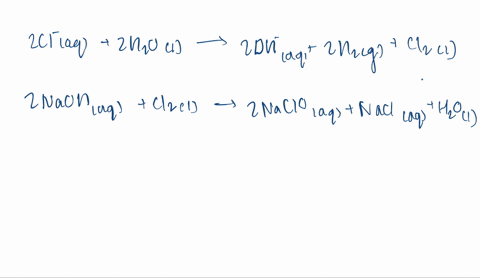 2Cl⁻(aq) + 2H₂O(l) → 2OH⁻(aq) + 2H₂(g) + Cl₂(l)
2NaOH(aq) + Cl₂(l) → 2NaClO(aq) + NaCl(aq) + H₂O(l)